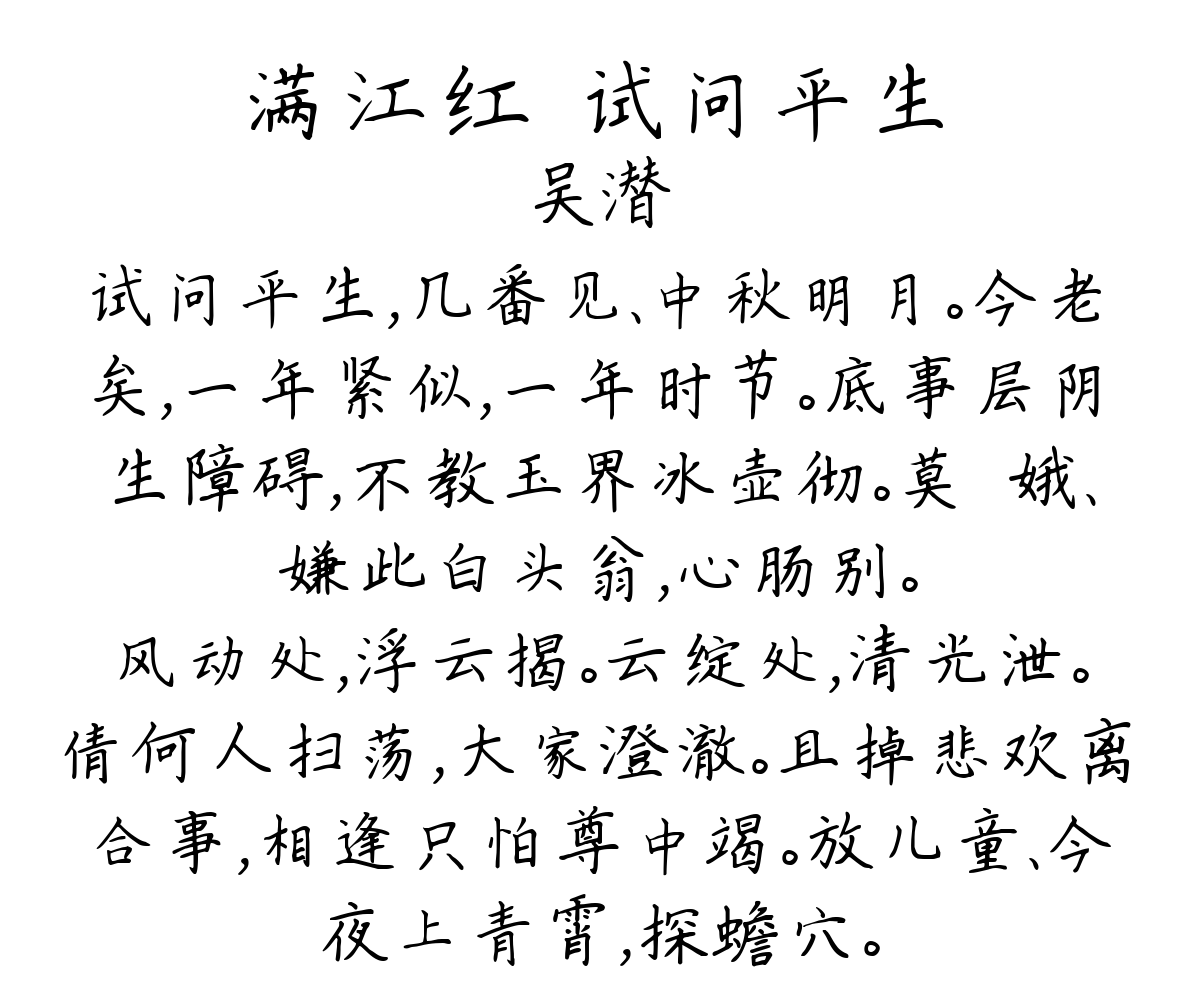 满江红 试问平生
吴潜
试问平生,几番见、中秋明月。今老
矣,一年紧似,一年时节。底事层阴
生障碍,不教玉界冰壶彻。莫 娥、
嫌此白头翁,心肠别。
风动处,浮云揭。云绽处,清光泄。
倩何人扫荡,大家澄澈。且掉悲欢离
合事,相逢只怕尊中竭。放儿童、今
夜上青霄,探蟾穴。